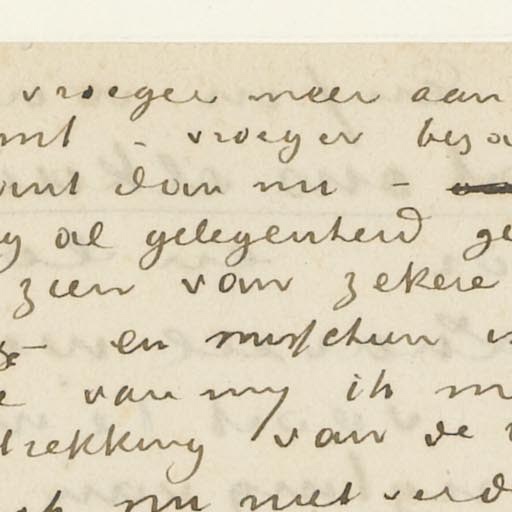 vroeger meer aan
mt - vroeger bez
ant dan nu -
y al gelegenheid ge
zien van zekere
en misschien
van my ik m
trekking van de
nu niet verd